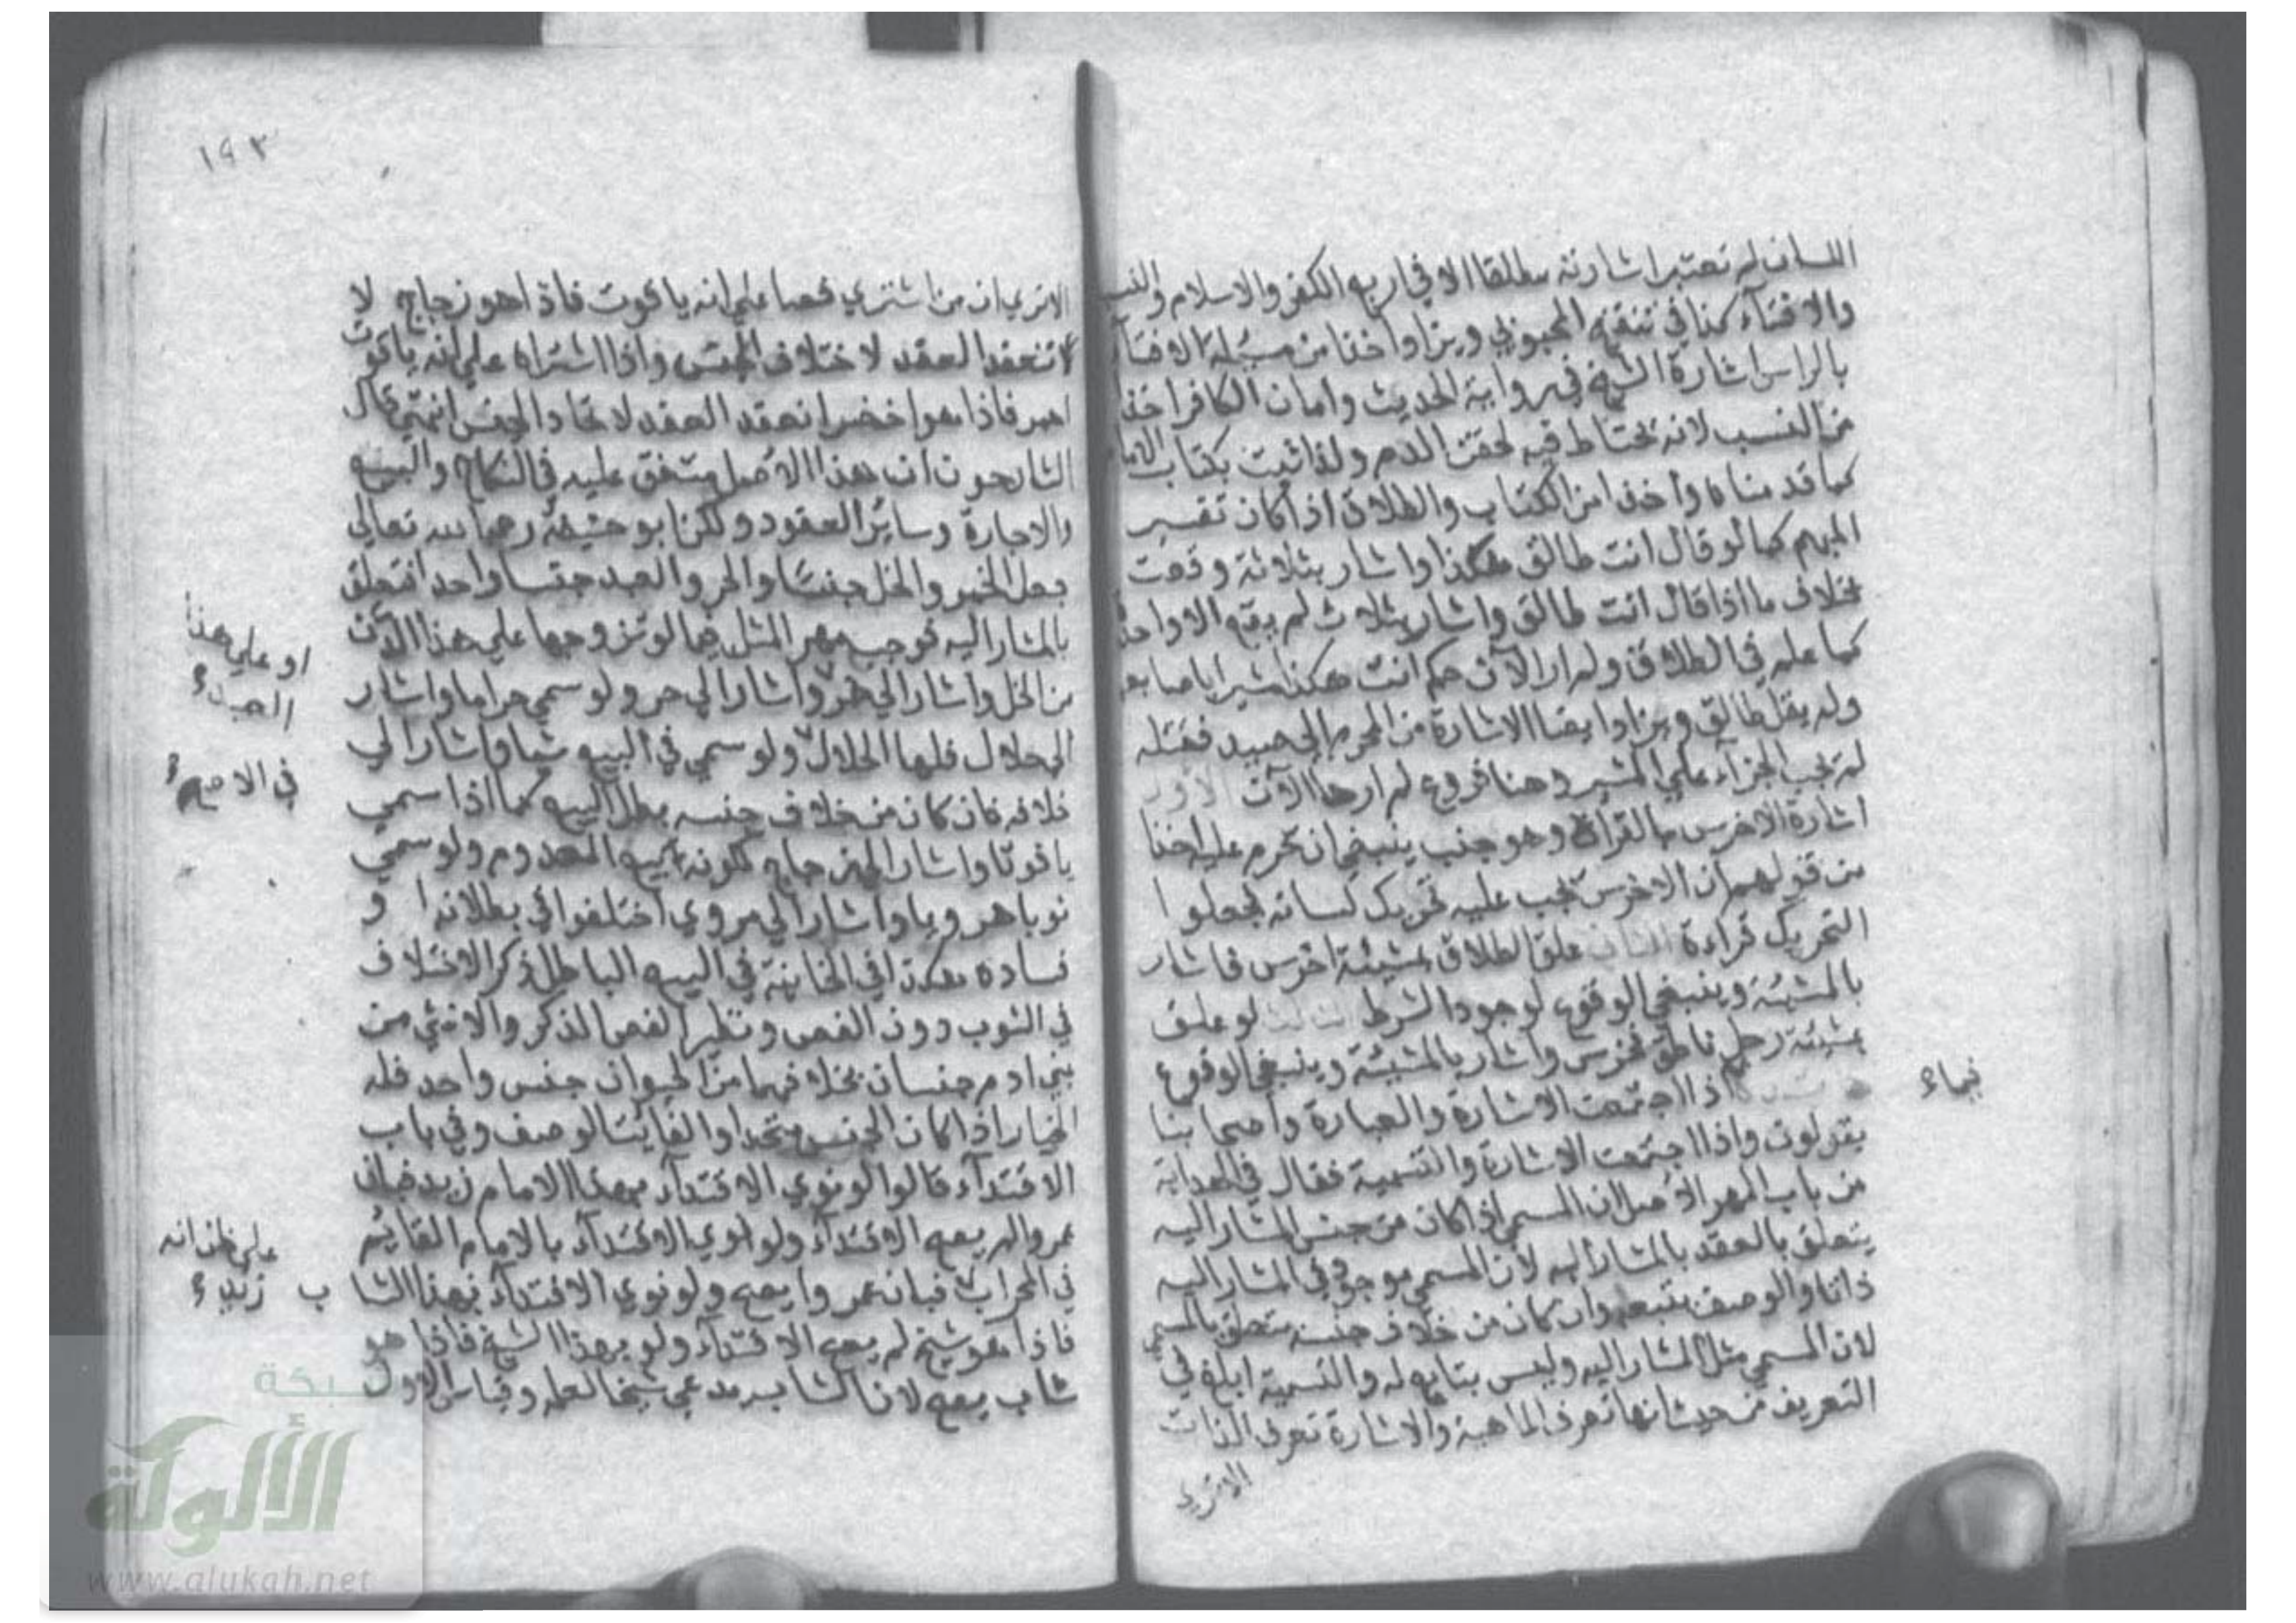 اللسان لم تعتبر اشارته مطلقا الا في اربع الكفر والاسلام والنسب
والافتاء كذا في تنقيح المحبوبي ويزاد اخذا من مسئلة الافتاء
بالراس اشارة الشيخ في رواية الحديث وامان الكافر اخذا
من النسب لانه يحتاط فيه لحقن الدم ولذا ثبت بكتاب الامام
كما قدمناه واخذا من الكتاب والطلاق اذا كان تفسير
المبهم كما لو قال انت طالق هكذا واشار بثلاثة وقعت
بخلاف ما اذا قال انت طالق واشار بثلاث لم يقع الا واحدة
كما علم في الطلاق ولم ار الآن حكم انت هكذا مشيرا باصابعه
ولم يقل طالق ويزاد ايضا الاشارة من المحرم الى صيد فقتله
لم يجب الجزاء على المشير وهنا فروع لم ارها الآن الاول
اشارة الاخرس بالقراة وهو جنب ينبغي ان تحرم عليه اخذا
من قولهم ان الاخرس يجب عليه تحريك لسانه فجعلوا
التحريك قراءة الثاني علق الطلاق بمشيئة اخرس فاشار
بالمشيئة وينبغي الوقوع لوجود الشرط الثالث لو علق
بمشيئة رجل ناطق فخرس واشار بالمشيئة وينبغي الوقوع
اذا اجتمعت الاشارة والعبارة واصحابنا
يقولون واذا اجتمعت الاشارة والتسمية فقال في الهداية
من باب المهر الاصل ان المسمى اذا كان من جنس المشار اليه
يتعلق بالعقد بالمشار اليه لان المسمى موجود في المشار اليه
ذاتا والوصف يتبعه وان كان من خلاف جنسه يتعلق بالمسمى
لان المسمى مثل المشار اليه وليس بتابع له والتسمية ابلغ في
التعريف من حيث انها تعرف الماهية والاشارة تعرف الذات
الا تري
١٩٣
الا تري ان من اشتري فصا علي انه ياقوت فاذا هو زجاج لا
لا تنعقد العقد لاختلاف الجنس واذا اشتراه علي انه ياقوت
احمر فاذا هو اخضر انعقد العقد لاتحاد الجنس انتهي قال
الشارحون ان هذا الاصل متفق عليه في النكاح والبيع
والاجارة وسائر العقود ولكن ابو حنيفة رحمه الله تعالي
جعل الخمر والخل جنسا والحر والعبد جنسا واحدا فتعلق
بالمشار اليه فوجب مهر المثل فيما لو تزوجها علي هذا الدن
من الخل واشار الي خمر واشار الي حر ولو سمي حراما واشار
الي حلال فلها الحلال ولو سمي في البيع شيا واشار الي
خلافه فان كان من خلاف جنسه بطل البيع كما اذا سمي
ياقوتا واشار الي زجاج لكونه بيع المعدوم ولو سمي
ثوبا هرويا واشار الي مروي اختلفوا في بطلانه ا و
فساده هكذا في الخانية في البيع الباطل ذكر الاختلاف
في الثوب دون الفص ونظير الفص الذكر والانثي من
بني ادم جنسان بخلافهما من الحيوان جنس واحد فله
الخيار اذا كان الجنس متحدا والفائت الوصف وفي باب
الاقتداء قالوا لو نوي الاقتداء بهذا الامام زيد فبان
عمروا لم يصح الاقتداء ولو نوي الاقتداء بالامام القائم
في المحراب فبان عمروا يصح ولو نوي الاقتداء بهذا الشا ب
فاذا هو شيخ لم يصح الاقتداء ولو بهذا الشيخ فاذا هو
شاب يصح لان الشاب يدعي شيخا لعلمه وقياس الاول
او علي هذا
العبد
في الاصح
علي ظن انه
زيد
فيما
شبكة
الألوكة
www.alukah.net